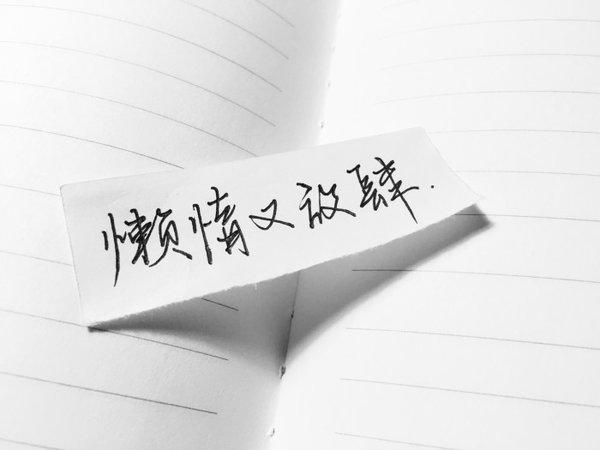 懒惰又放肆.